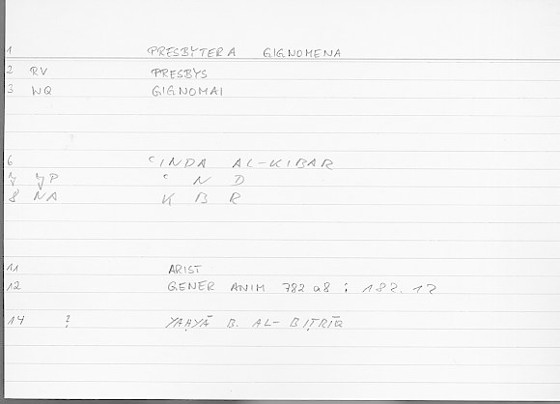 1 PRESBYTERA GIGNOMENA
2 RV PRESBYS
3 WQ GIGNOMAI
6 ʿINDA AL-KIBAR
7 YP ʿ N D
8 NA K B R
11 ARIST
12 GENER ANIM 782 a8 : 182.12
14 ? YAḤYĀ B. AL-BIṬRĪQ